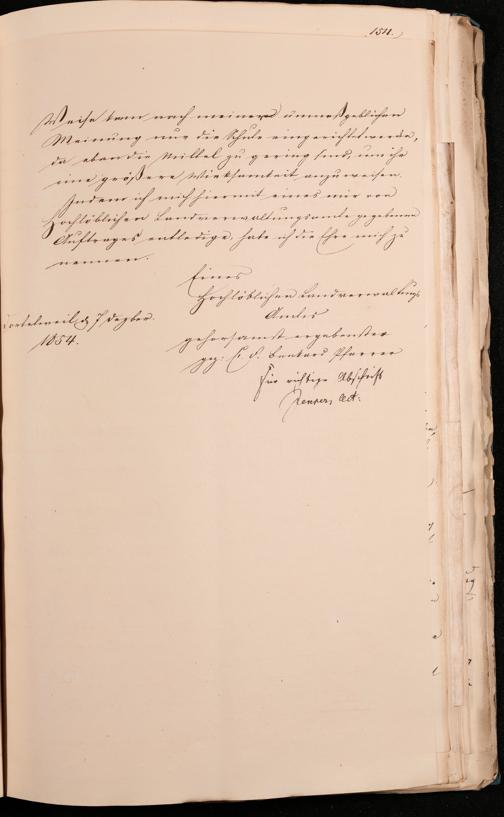 154.
Weise kann nach meiner unmaßgeblichen
Meinung nur die Schule eingerichtet werden,
da eben die Mittel zu gering sind, um ihr
eine größere Wirksamkeit anzuweisen.
Indem ich mich hiermit eines mir von
Hochlöblichem Landverwaltungsamte gegebenen
Auftrages entledige, habe ich die Ehre mich zu
nennen.
Eines
Hochlöblichen Landverwaltungs
Amtes
Dortelweil, d. 7 Dezbr.
1854.
gehorsamst ergebenster
gez: Pfarrer
Für richtige Abschrift
Act.